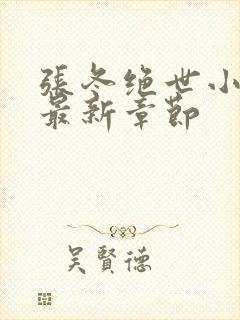 張冬絕世小
最新章節
吳賢德